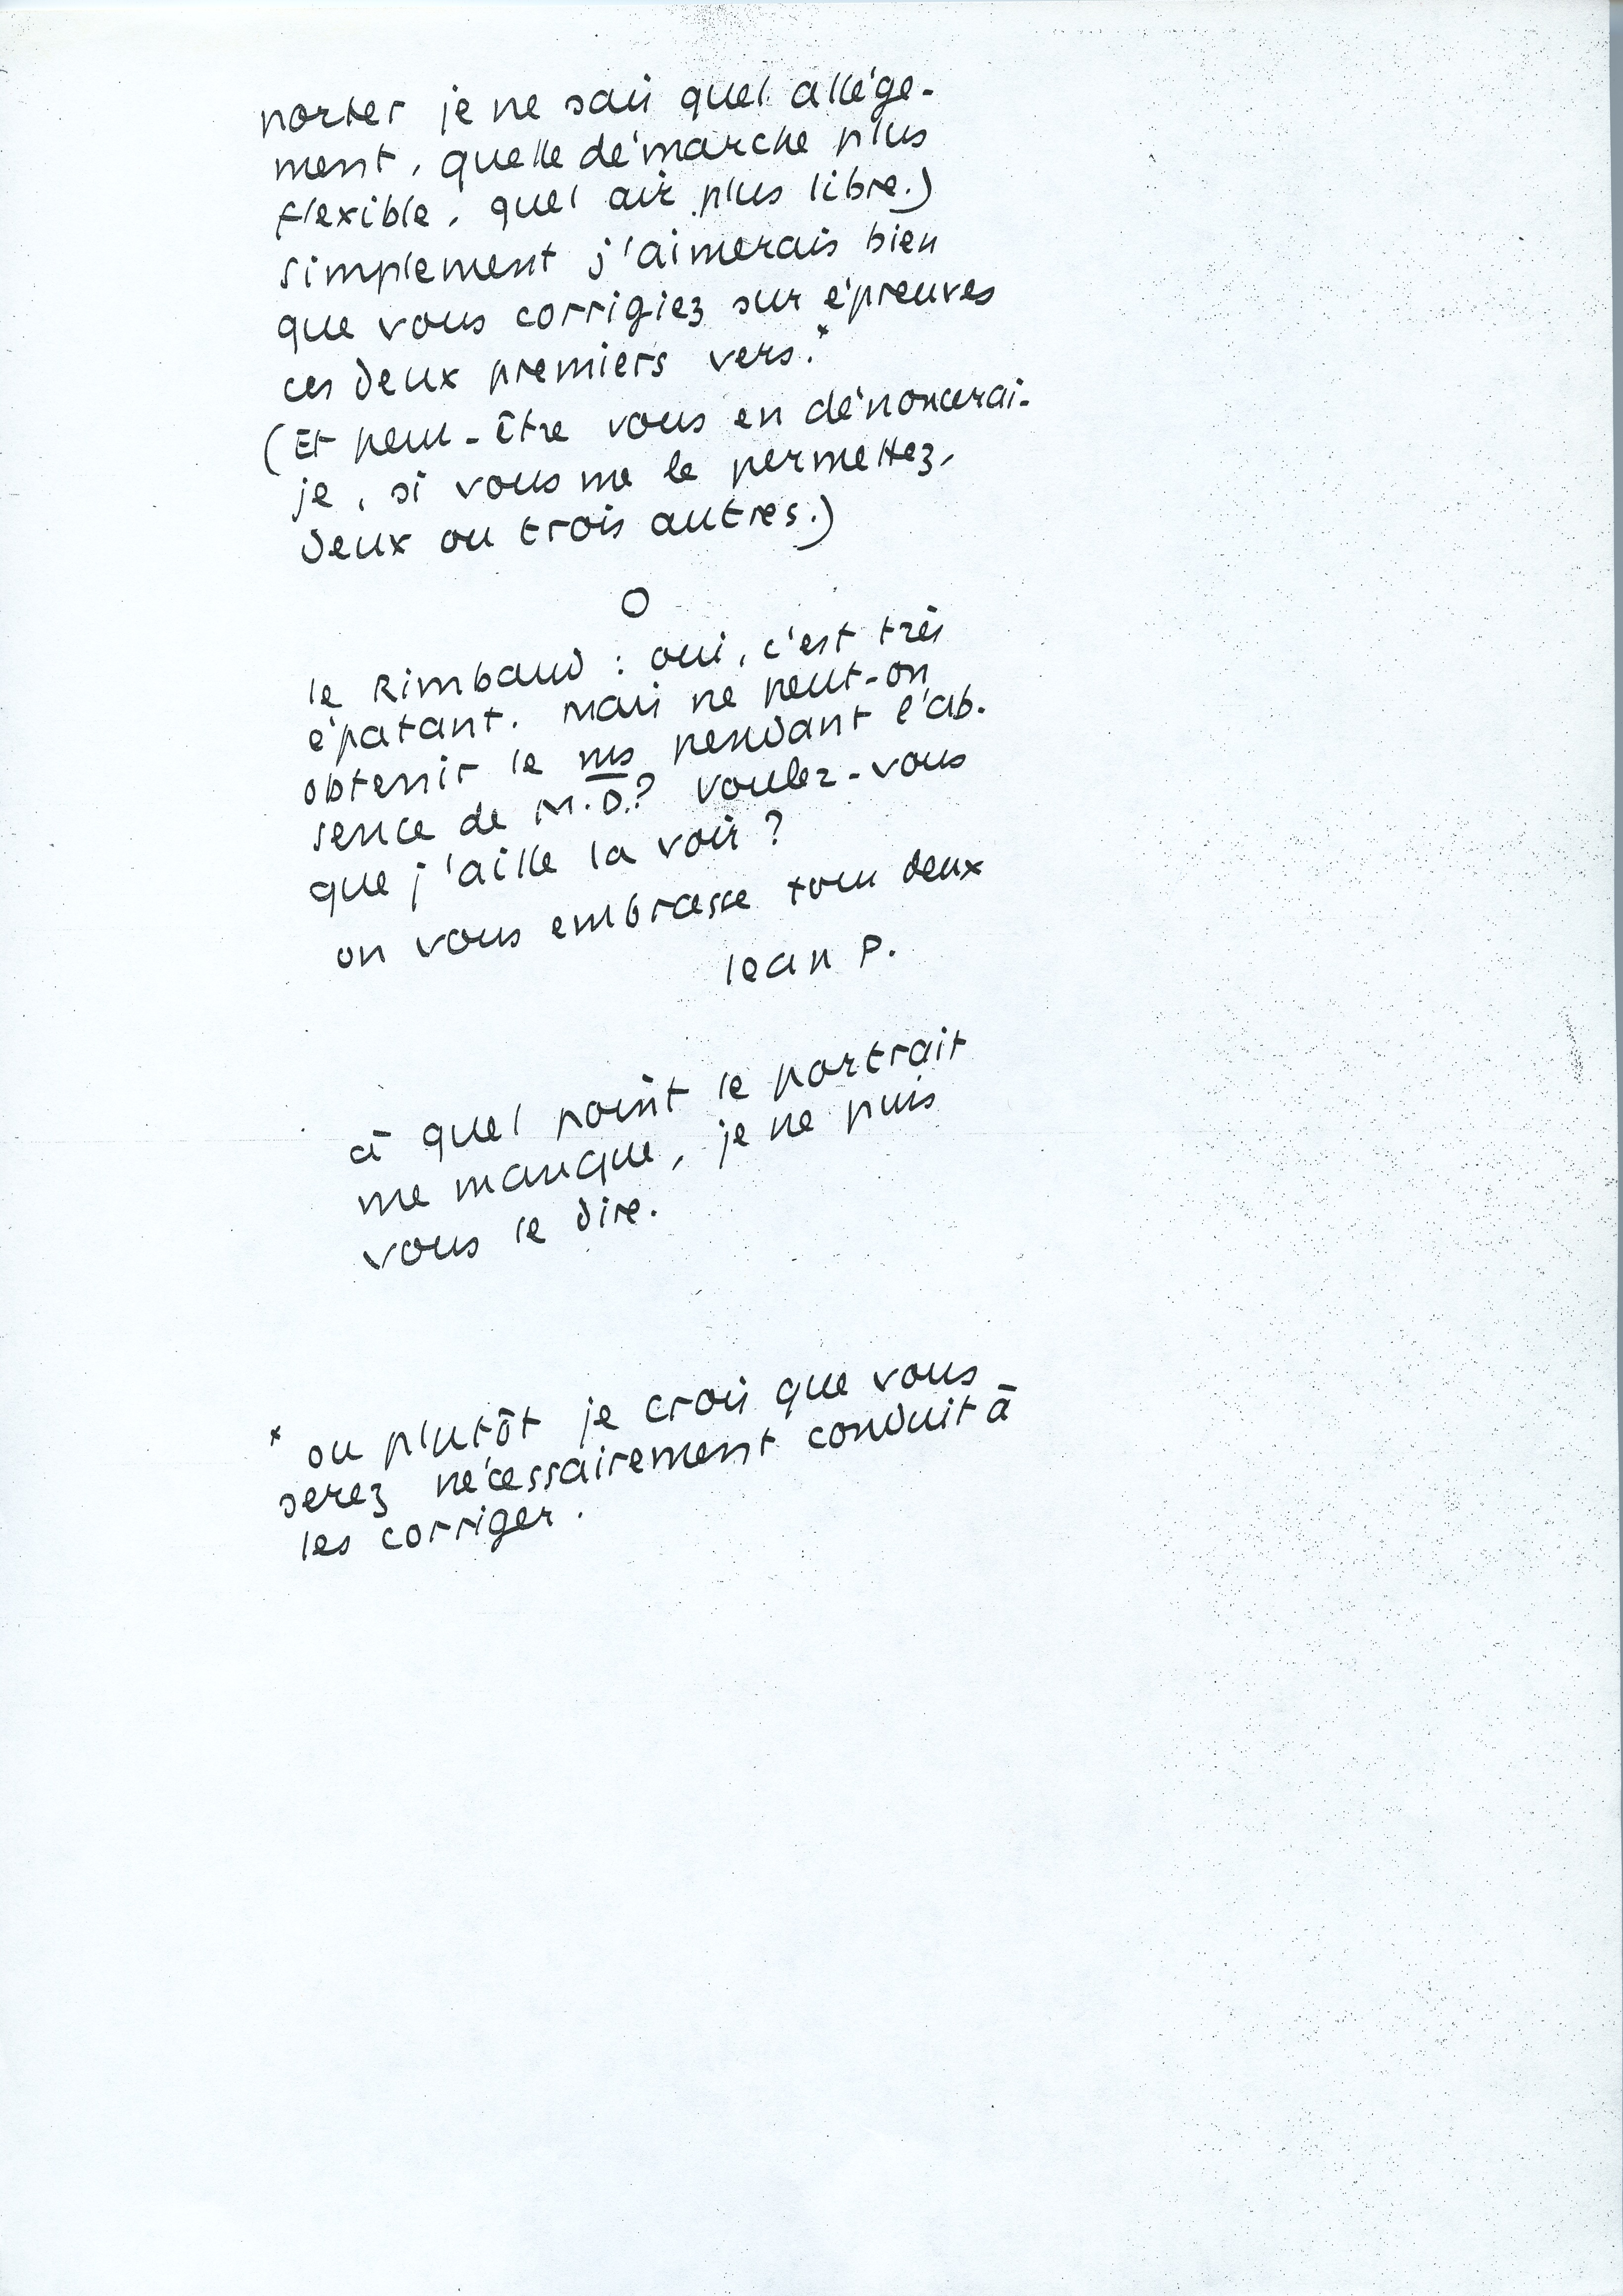 porter je ne sais quel allége-
ment, quelle démarche plus
flexible, quel air plus libre.)
simplement j'aimerais bien
que vous corrigiez sur épreuves
ces deux premiers vers.*
(Et peut-être vous en dénoncerai-
je, si vous me le permettez,
deux ou trois autres.)
O
le Rimbaud : oui, c'est très
épatant. Mais ne peut-on
obtenir le ms pendant l'ab-
sence de M.D.? Voulez-vous
que j'aille la voir ?
on vous embrasse tous deux
Jean P.
à quel point le portrait
me manque, je ne puis
vous le dire.
* ou plutôt je crois que vous
serez nécessairement conduit à
les corriger.